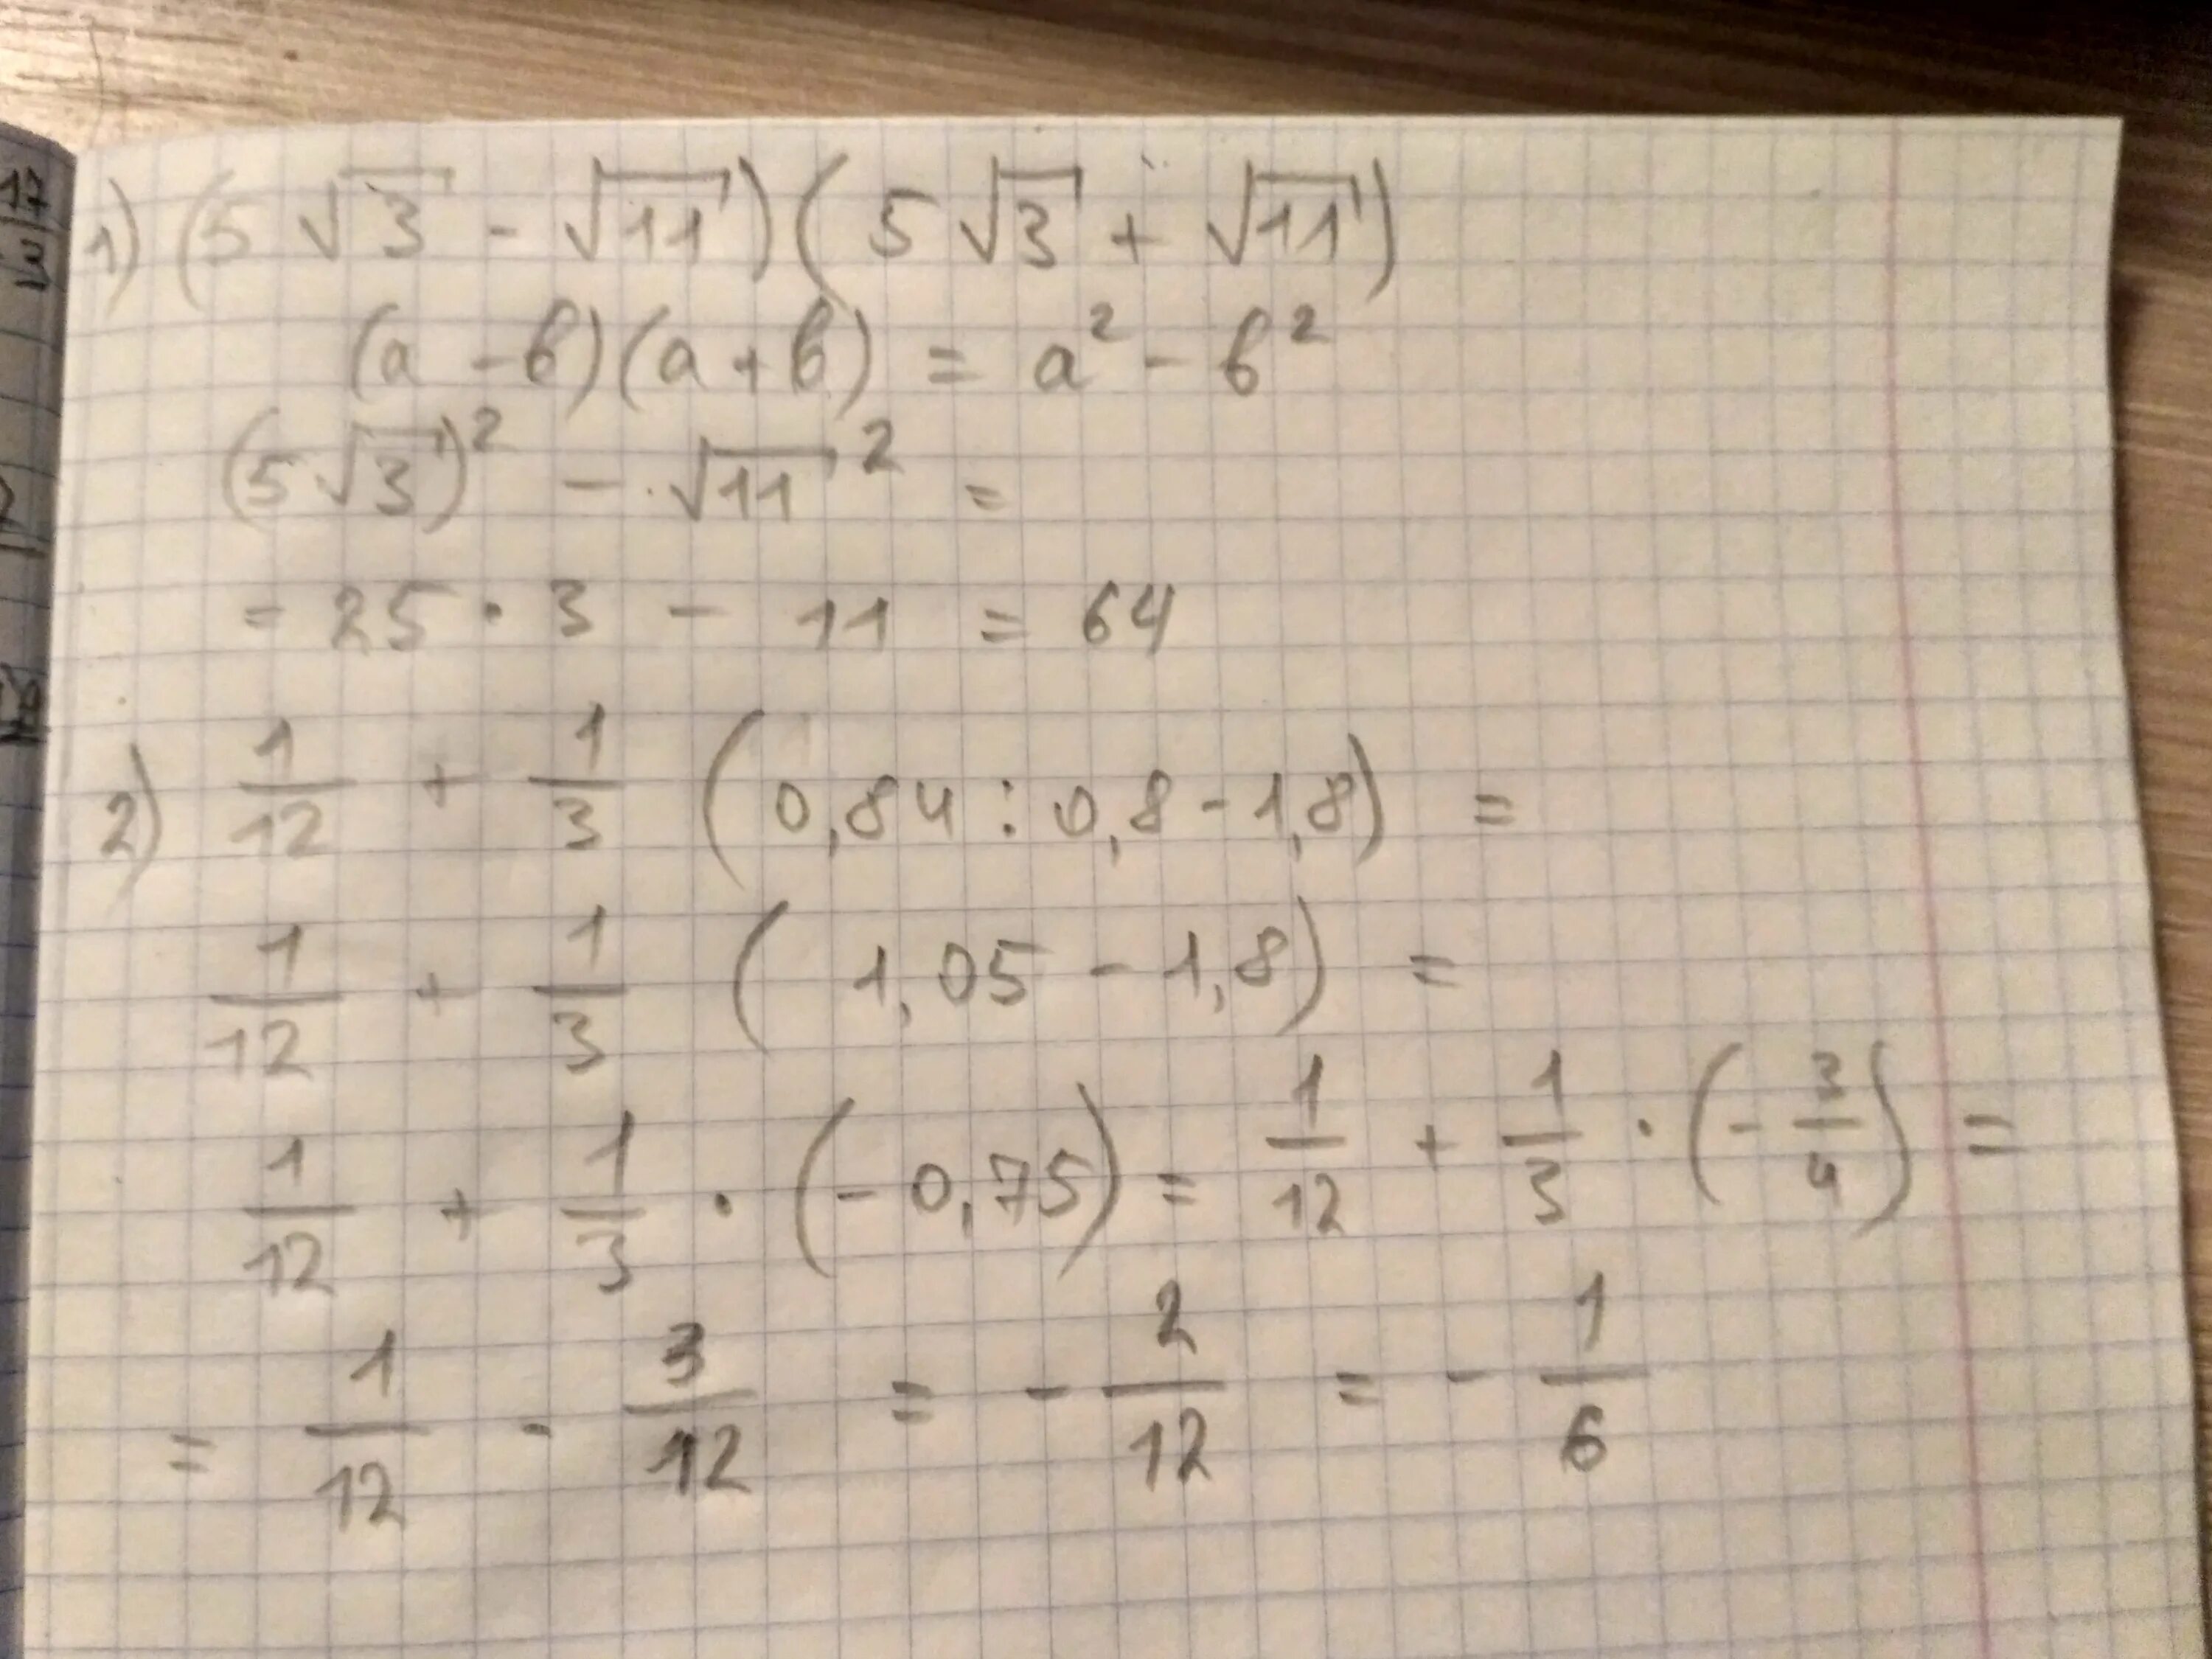 1) (5√3 - √11)(5√3 + √11)
(a - b)(a + b) = a² - b²
(5√3)² - √11² =
= 25 · 3 - 11 = 64
2) 1/12 + 1/3 (0,84 : 0,8 - 1,8) =
1/12 + 1/3 (1,05 - 1,8) =
1/12 + 1/3 · (-0,75) = 1/12 + 1/3 · (-3/4) =
= 1/12 - 3/12 = -2/12 = -1/6